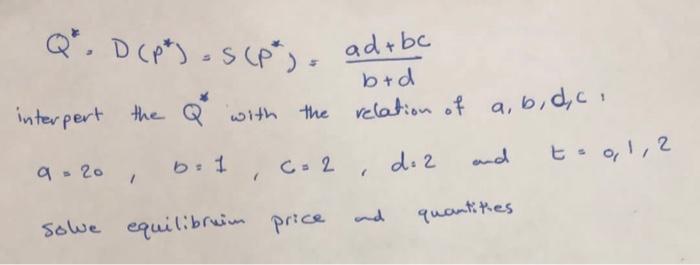 Q*, D(p*) = S(p*) = ad+bc / b+d
interpert the Q* with the relation of a, b, d, c,
a = 20 , b = 1 , c = 2 , d = 2 and t = 0, 1, 2
Solve equilibruim price and quantities